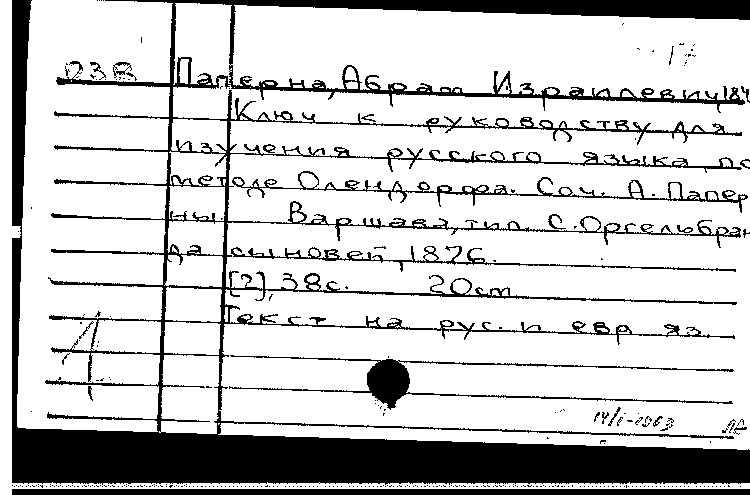 17
D38 Паперна, Абрам Израилевич, 184
Ключ к руководству для
изучения русского языка по
методе Олендорфа. Соч. А. Папер
ны Варшава, тип. С. Оргельбран
да сыновей, 1876.
[2], 38с. 20cm
Текст на рус. и евр яз.
1